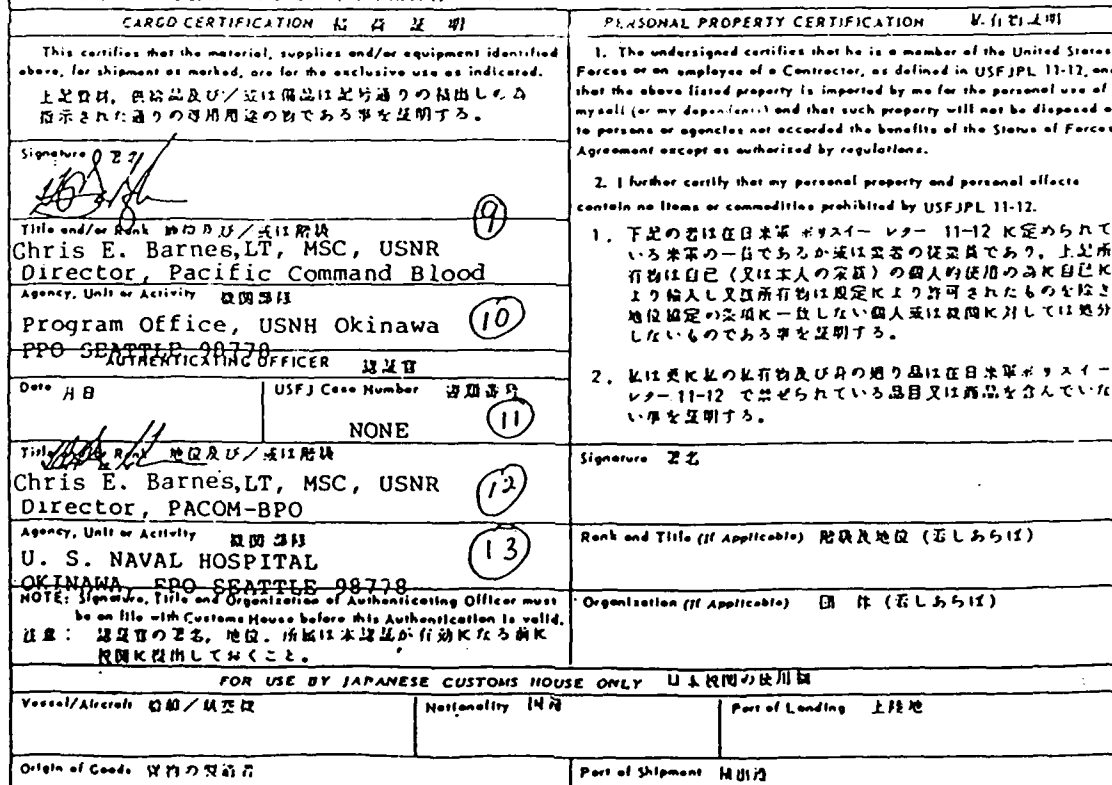 CARGO CERTIFICATION 積荷証明
This certifies that the material, supplies and/or equipment identified
above, for shipment as marked, are for the exclusive use as indicated.
上記資材, 供給品及び/又は備品は記号通りの積出した為
指示された通りの専用用途の物である事を証明する。
Signature 署名
9
Title and/or Rank 地位及び/或は階級
Chris E. Barnes,LT, MSC, USNR
Director, Pacific Command Blood
Agency, Unit or Activity 機関部隊
10
Program Office, USNH Okinawa
FPO SEATTLE 98778
AUTHENTICATING OFFICER 認証官
Date 月日
USFJ Case Number 書類番号
NONE
11
Title Rank 地位及び/或は階級
Chris E. Barnes,LT, MSC, USNR
Director, PACOM-BPO
12
Agency, Unit or Activity 機関部隊
U. S. NAVAL HOSPITAL
OKINAWA, FPO SEATTLE 98778
13
NOTE: Signature, Title and Organization of Authenticating Officer must
be on file with Customs House before this Authentication is valid.
注意: 認証官の署名, 地位, 所属は本認証が有効になる前に
税関に提出しておくこと。
PERSONAL PROPERTY CERTIFICATION 私有物証明
1. The undersigned certifies that he is a member of the United States
Forces or an employee of a Contractor, as defined in USFJPL 11-12, and
that the above listed property is imported by me for the personal use of
myself (or my dependents) and that such property will not be disposed of
to persons or agencies not accorded the benefits of the Status of Forces
Agreement except as authorized by regulations.
2. I further certify that my personal property and personal effects
contain no items or commodities prohibited by USFJPL 11-12.
1. 下記の者は在日米軍 ポリスイー レター 11-12 に定められて
いる米軍の一員であるか或は業者の従業員であり, 上記所
有物は自己(又は本人の家族)の個人的使用の為に自己に
より輸入し又該所有物は規定により許可されたものを除き
地位協定の条項に一致しない個人或は機関に対しては処分
しないものである事を証明する。
2. 私は更に私の私有物及び身の廻り品は在日米軍ポリスイー
レター 11-12 で禁ぜられている品目又は商品を含んでいな
い事を証明する。
Signature 署名
Rank and Title (If Applicable) 階級及地位 (若しあらば)
Organization (If Applicable) 団体 (若しあらば)
FOR USE BY JAPANESE CUSTOMS HOUSE ONLY 日本税関の使用欄
Vessel/Aircraft 船舶/航空機
Nationality 国籍
Port of Landing 上陸地
Origin of Goods 貨物の製造者
Port of Shipment 積出港